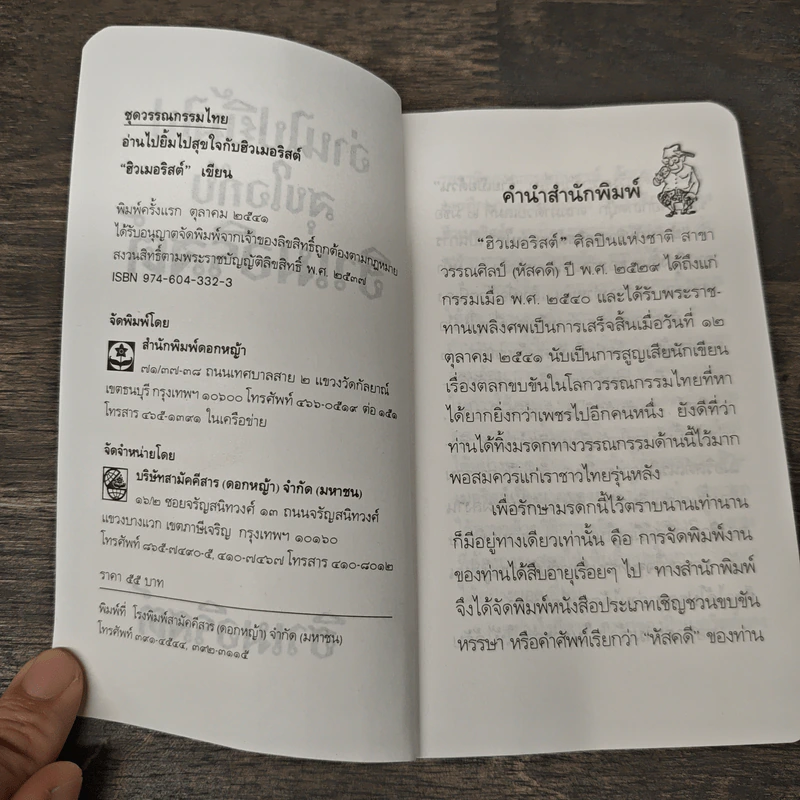 ชุดวรรณกรรมไทย
อ่านไปยิ้มไปสุขใจกับฮิวเมอริสต์
“ฮิวเมอริสต์” เขียน
พิมพ์ครั้งแรก ตุลาคม ๒๕๔๑
ได้รับอนุญาตจัดพิมพ์จากเจ้าของลิขสิทธิ์ถูกต้องตามกฎหมาย
สงวนสิทธิ์ตามพระราชบัญญัติลิขสิทธิ์ พ.ศ. ๒๕๓๗
ISBN 974-604-332-3
จัดพิมพ์โดย
สำนักพิมพ์ดอกหญ้า
๗๑/๓๗-๓๘ ถนนเทศบาลสาย ๒ แขวงวัดกัลยาณ์
เขตธนบุรี กรุงเทพฯ ๑๐๖๐๐ โทรศัพท์ ๔๖๖-๐๕๑๙ ต่อ ๑๕๑
โทรสาร ๔๖๕-๑๓๙๑ ในเครือข่าย
จัดจำหน่ายโดย
บริษัทสามัคคีสาร (ดอกหญ้า) จำกัด (มหาชน)
๑๖/๒ ซอยจรัญสนิทวงศ์ ๑๓ ถนนจรัญสนิทวงศ์
แขวงบางแวก เขตภาษีเจริญ กรุงเทพฯ ๑๐๑๖๐
โทรศัพท์ ๘๖๕-๗๔๙๐-๕, ๔๑๐-๗๔๖๗ โทรสาร ๔๑๐-๘๐๑๒
ราคา ๕๕ บาท
พิมพ์ที่ โรงพิมพ์สามัคคีสาร (ดอกหญ้า) จำกัด (มหาชน)
โทรศัพท์ ๓๙๑-๔๕๔๔, ๓๙๒-๓๑๑๕
คำนำสำนักพิมพ์
“ฮิวเมอริสต์” ศิลปินแห่งชาติ สาขา
วรรณศิลป์ (หัสคดี) ปี พ.ศ. ๒๕๒๙ ได้ถึงแก่
กรรมเมื่อ พ.ศ. ๒๕๔๐ และได้รับพระราช-
ทานเพลิงศพเป็นการเสร็จสิ้นเมื่อวันที่ ๑๒
ตุลาคม ๒๕๔๑ นับเป็นการสูญเสียนักเขียน
เรื่องตลกขบขันในโลกวรรณกรรมไทยที่หา
ได้ยากยิ่งกว่าเพชรไปอีกคนหนึ่ง ยังดีที่ว่า
ท่านได้ทิ้งมรดกทางวรรณกรรมด้านนี้ไว้มาก
พอสมควรแก่เราชาวไทยรุ่นหลัง
เพื่อรักษามรดกนี้ไว้ตราบนานเท่านาน
ก็มีอยู่ทางเดียวเท่านั้น คือ การจัดพิมพ์งาน
ของท่านได้สืบอายุเรื่อยๆ ไป ทางสำนักพิมพ์
จึงได้จัดพิมพ์หนังสือประเภทเชิญชวนขบขัน
หรรษา หรือคำศัพท์เรียกว่า “หัสคดี” ของท่าน